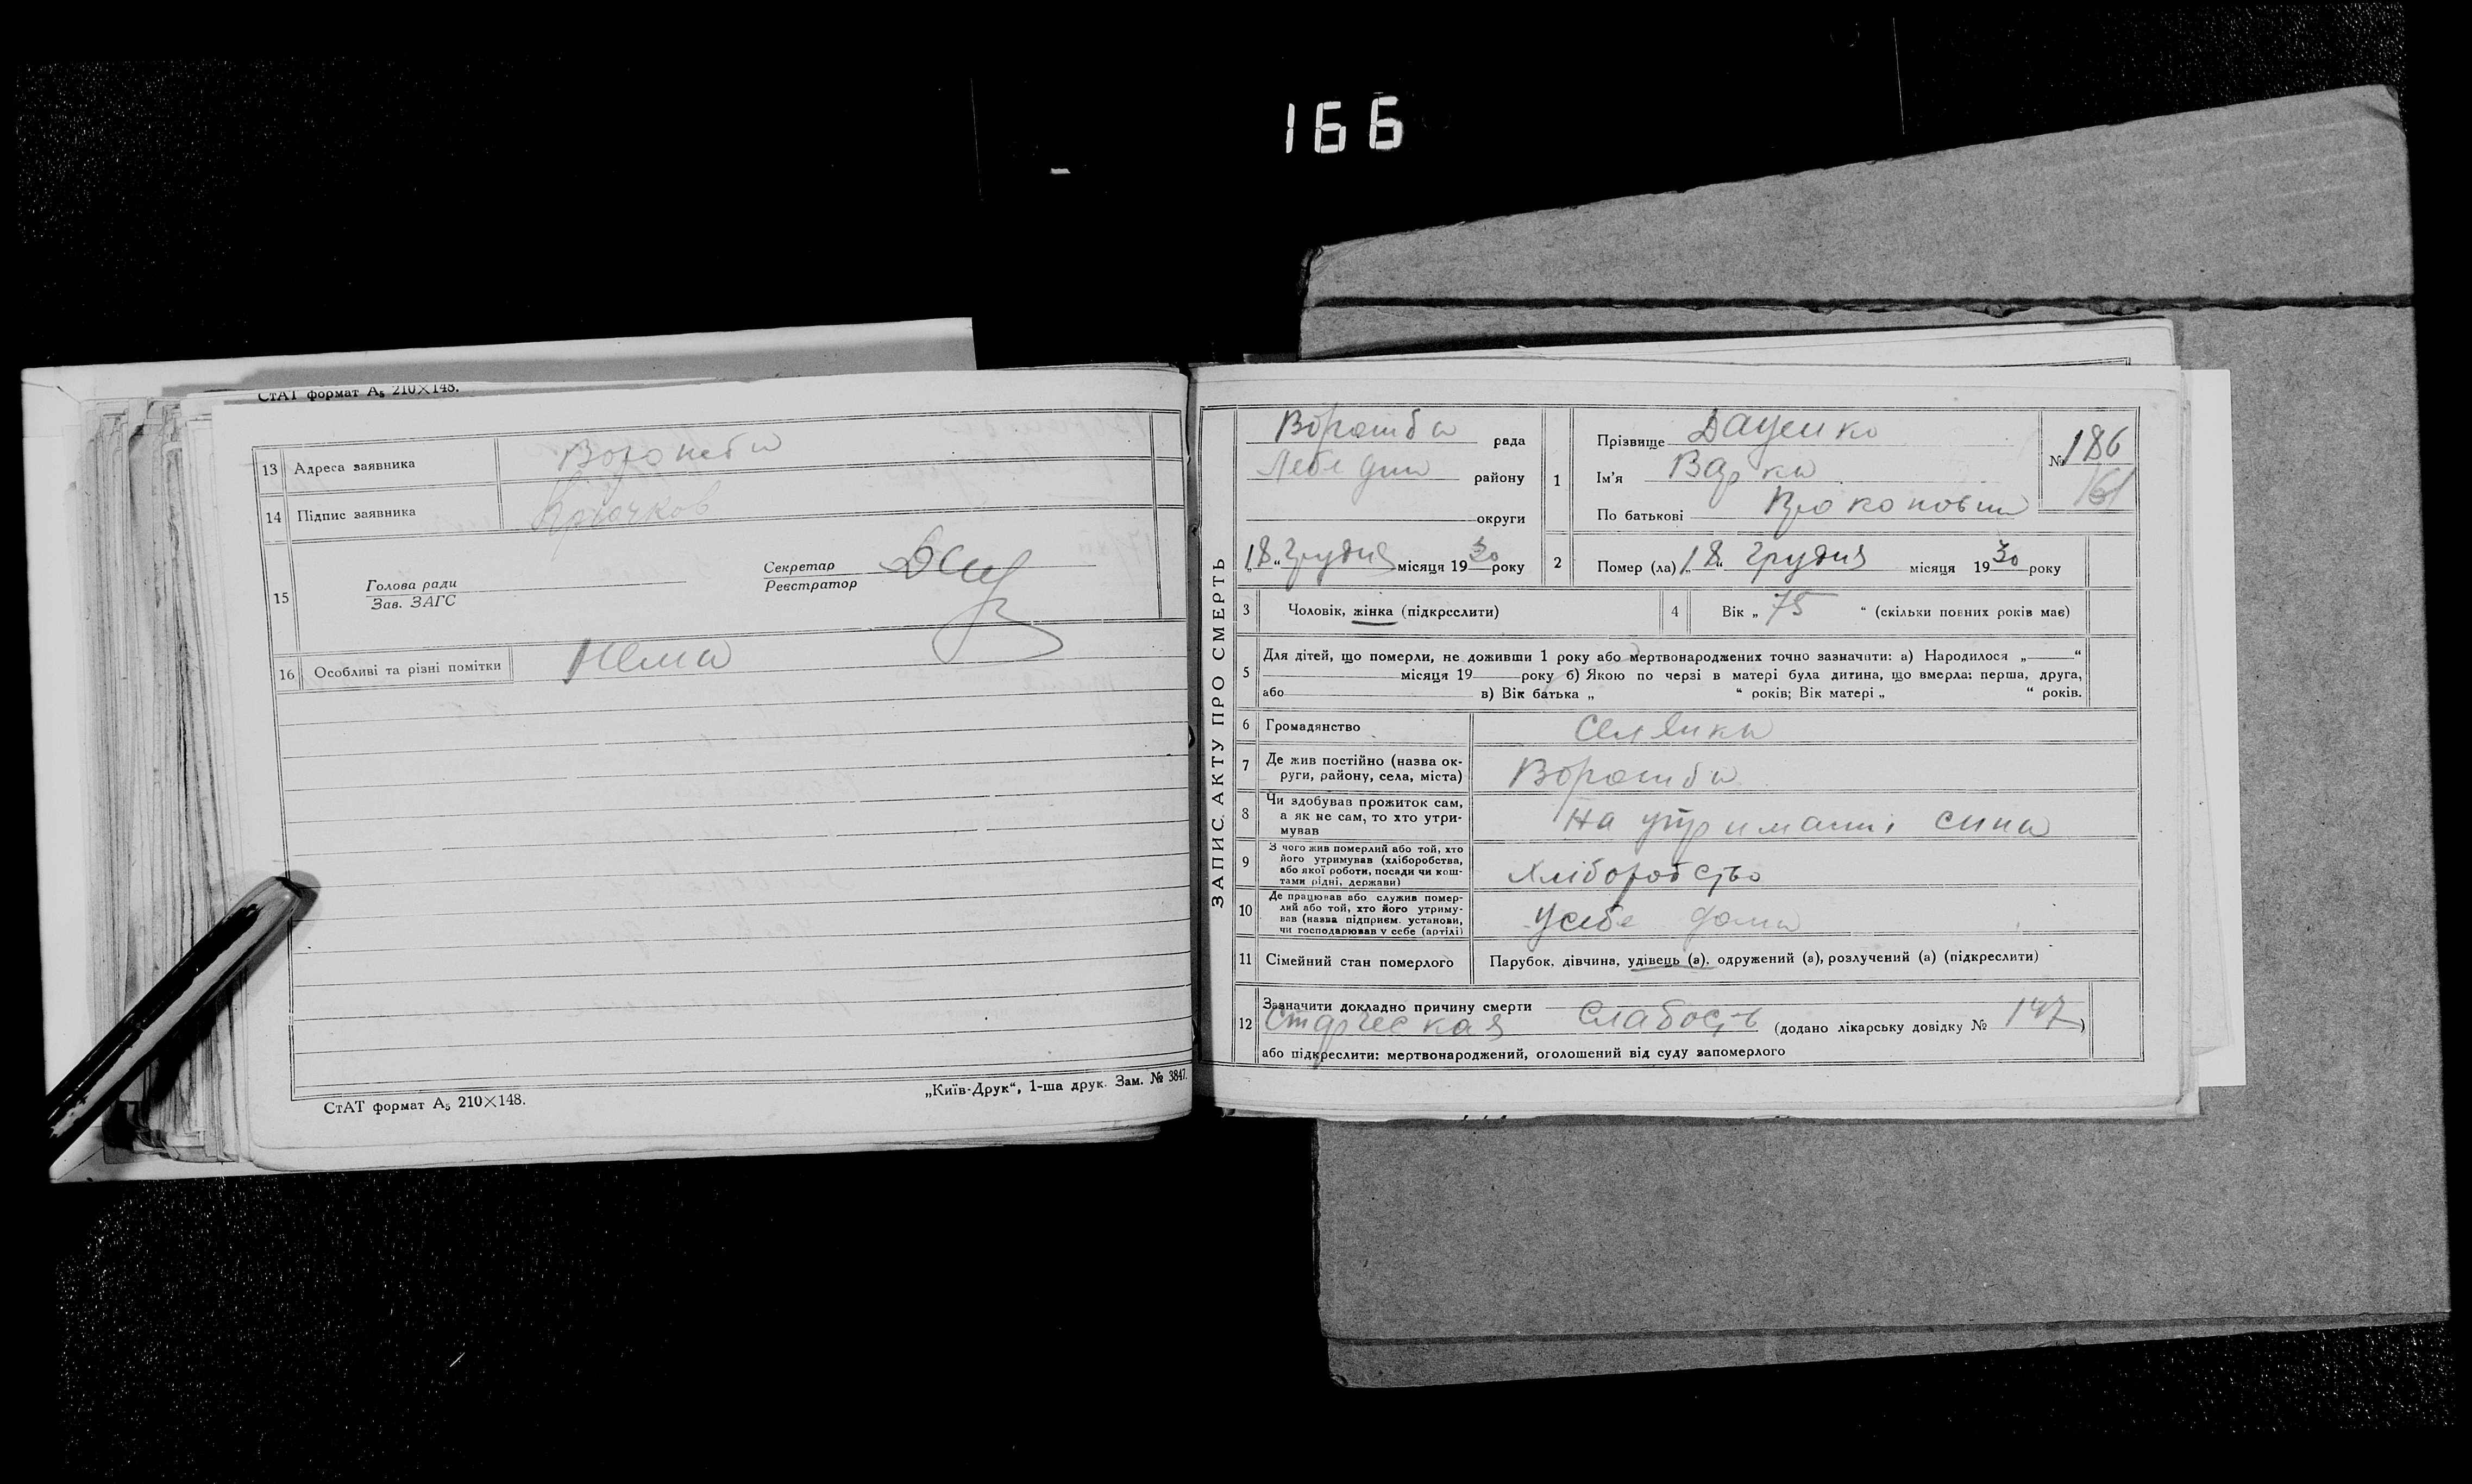 166
СтАТ формат А₅ 210×148.
13 Адреса заявникаВорожба
14 Підпис заявника Крючков
15 Голова ради
Зав. ЗАГС
Секретар
Реєстратор
16 Особливі та різні помітки Нема
СтАТ формат А₅ 210×148.
„Київ-Друк“, 1-ша друк. Зам. № 3847.
ЗАПИС АКТУ ПРО СМЕРТЬ
Ворожба рада
Лебедин району
округи
„18“ Грудня місяця 1930 року
1 Прізвище Даценко
Ім'я Варка
По батькові
№ 186
161
2 Помер (ла) „18“ Грудня місяця 1930 року
3 Чоловік, жінка (підкреслити)
4 Вік „ 75 “ (скільки повних років має)
5 Для дітей, що померли, не доживши 1 року або мертвонароджених точно зазначити: а) Народилося „ “
місяця 19 року б) Якою по черзі в матері була дитина, що вмерла: перша, друга,
або в) Вік батька „ “ років; Вік матері „ “ років.
6 Громадянство Селянка
7 Де жив постійно (назва ок-
руги, району, села, міста) Ворожба
8 Чи здобував прожиток сам,
а як не сам, то хто утри-
мував На утриманні сина
9 З чого жив померлий або той, хто
його утримував (хліборобства,
або якої роботи, посади чи кош-
тами рідні, держави) Хліборобство
10 Де працював або служив помер-
лий або той, хто його утриму-
вав (назва підприєм. установи,
чи господарював у себе (артілі) У себе дома
11 Сімейний стан померлого Парубок, дівчина, удівець (а), одружений (а), розлучений (а) (підкреслити)
12 Зазначити докладно причину смерти
Старческая слабость (додано лікарську довідку № 147)
або підкреслити: мертвонароджений, оголошений від суду запомерлого